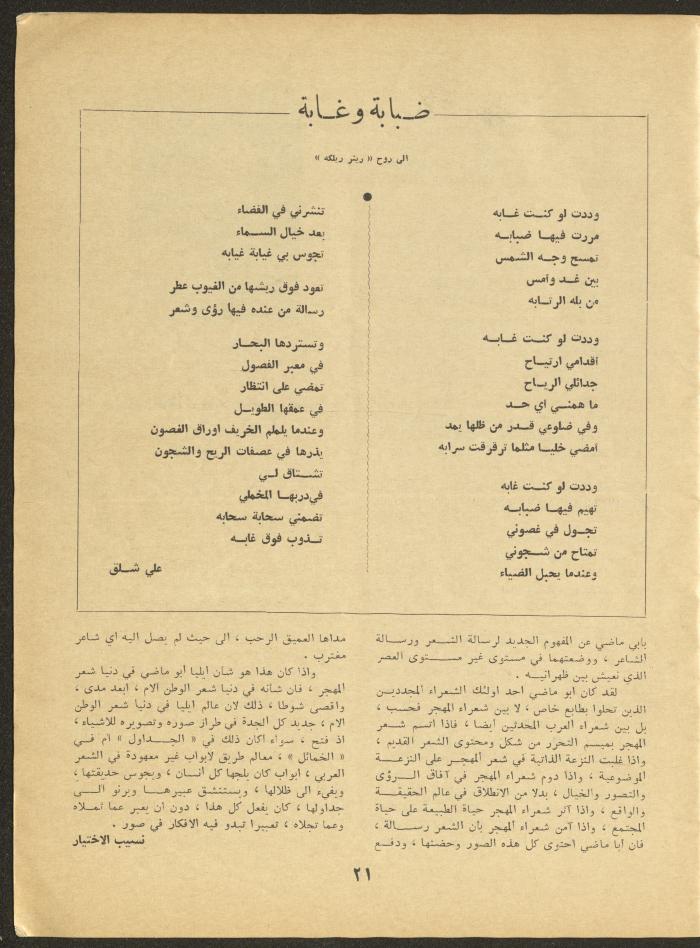 ضبابة وغابة
الى روح « رينر ريلكه »
وددت لو كنت غابه
مررت فيها ضبابه
تمسح وجه الشمس
بين غد وامس
من بله الرتابه
وددت لو كنت غابه
اقدامي ارتياح
جدائلي الرياح
ما همني اي حد
وفي ضلوعي قدر من ظلها يمد
امضي خليا مثلما ترقرقت سرابه
وددت لو كنت غابه
تهيم فيها ضبابه
تجول في غصوني
تمتاح من شجوني
وعندما يحبل الضياء
تنشرني في الفضاء
بعد خيال السماء
تجوس بي غيابة غيابه
تعود فوق ريشها من الغيوب عطر
رسالة من عنده فيها رؤى وشعر
وتستردها البحار
في معبر الفصول
تمضي على انتظار
في عمقها الطويل
وعندما يلملم الخريف اوراق الغصون
يذرها في عصفات الريح والشجون
تشتاق لي
في دربها المخملي
تضمني سحابة سحابه
تذوب فوق غابه
علي شلق
بابي ماضي عن المفهوم الجديد لرسالة الشعر ورسالة
الشاعر ، ووضعتهما في مستوى غير مستوى العصر
الذي نعيش بين ظهرانيه .
لقد كان أبو ماضي احد اولئك الشعراء المجددين
الذين تحلوا بطابع خاص ، لا بين شعراء المهجر فحسب ،
بل بين شعراء العرب المحدثين ايضا ، فاذا اتسم شعر
المهجر بميسم التحرر من شكل ومحتوى الشعر القديم ،
واذا غلبت النزعة الذاتية في شعر المهجر على النزعة
الموضوعية ، واذا دوم شعراء المهجر في آفاق الرؤى
والتصور والخيال ، بدلا من الانطلاق في عالم الحقيقة
والواقع ، واذا آثر شعراء المهجر حياة الطبيعة على حياة
المجتمع ، واذا آمن شعراء المهجر بأن الشعر رسالة ،
فان أبا ماضي احتوى كل هذه الصور وحضنها ، ودفع
مداها العميق الرحب ، الى حيث لم يصل اليه اي شاعر
مغترب .
واذا كان هذا هو شأن ايليا أبو ماضي في دنيا شعر
المهجر ، فان شأنه في دنيا شعر الوطن الام ، ابعد مدى ،
واقصى شوطا ، ذلك لان عالم ايليا في دنيا شعر الوطن
الام ، جديد كل الجدة في طراز صوره وتصويره للاشياء ،
اذ فتح ، سواء اكان ذلك في « الجداول » ام في
« الخمائل » ، معالم طريق لابواب غير معهودة في الشعر
العربي ، ابواب كان يلجها كل انسان ، ويجوس حديقتها ،
ويفيء الى ظلالها ، ويستنشق عبيرها ويرنو الى
جداولها ، كان يفعل كل هذا ، دون ان يعبر عما تملاه
وعما تجلاه ، تعبيرا تبدو فيه الافكار في صور .
نسيب الاختيار
٢١